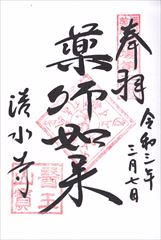 奉拝
令和三年
三月七日
薬師如来
清水寺